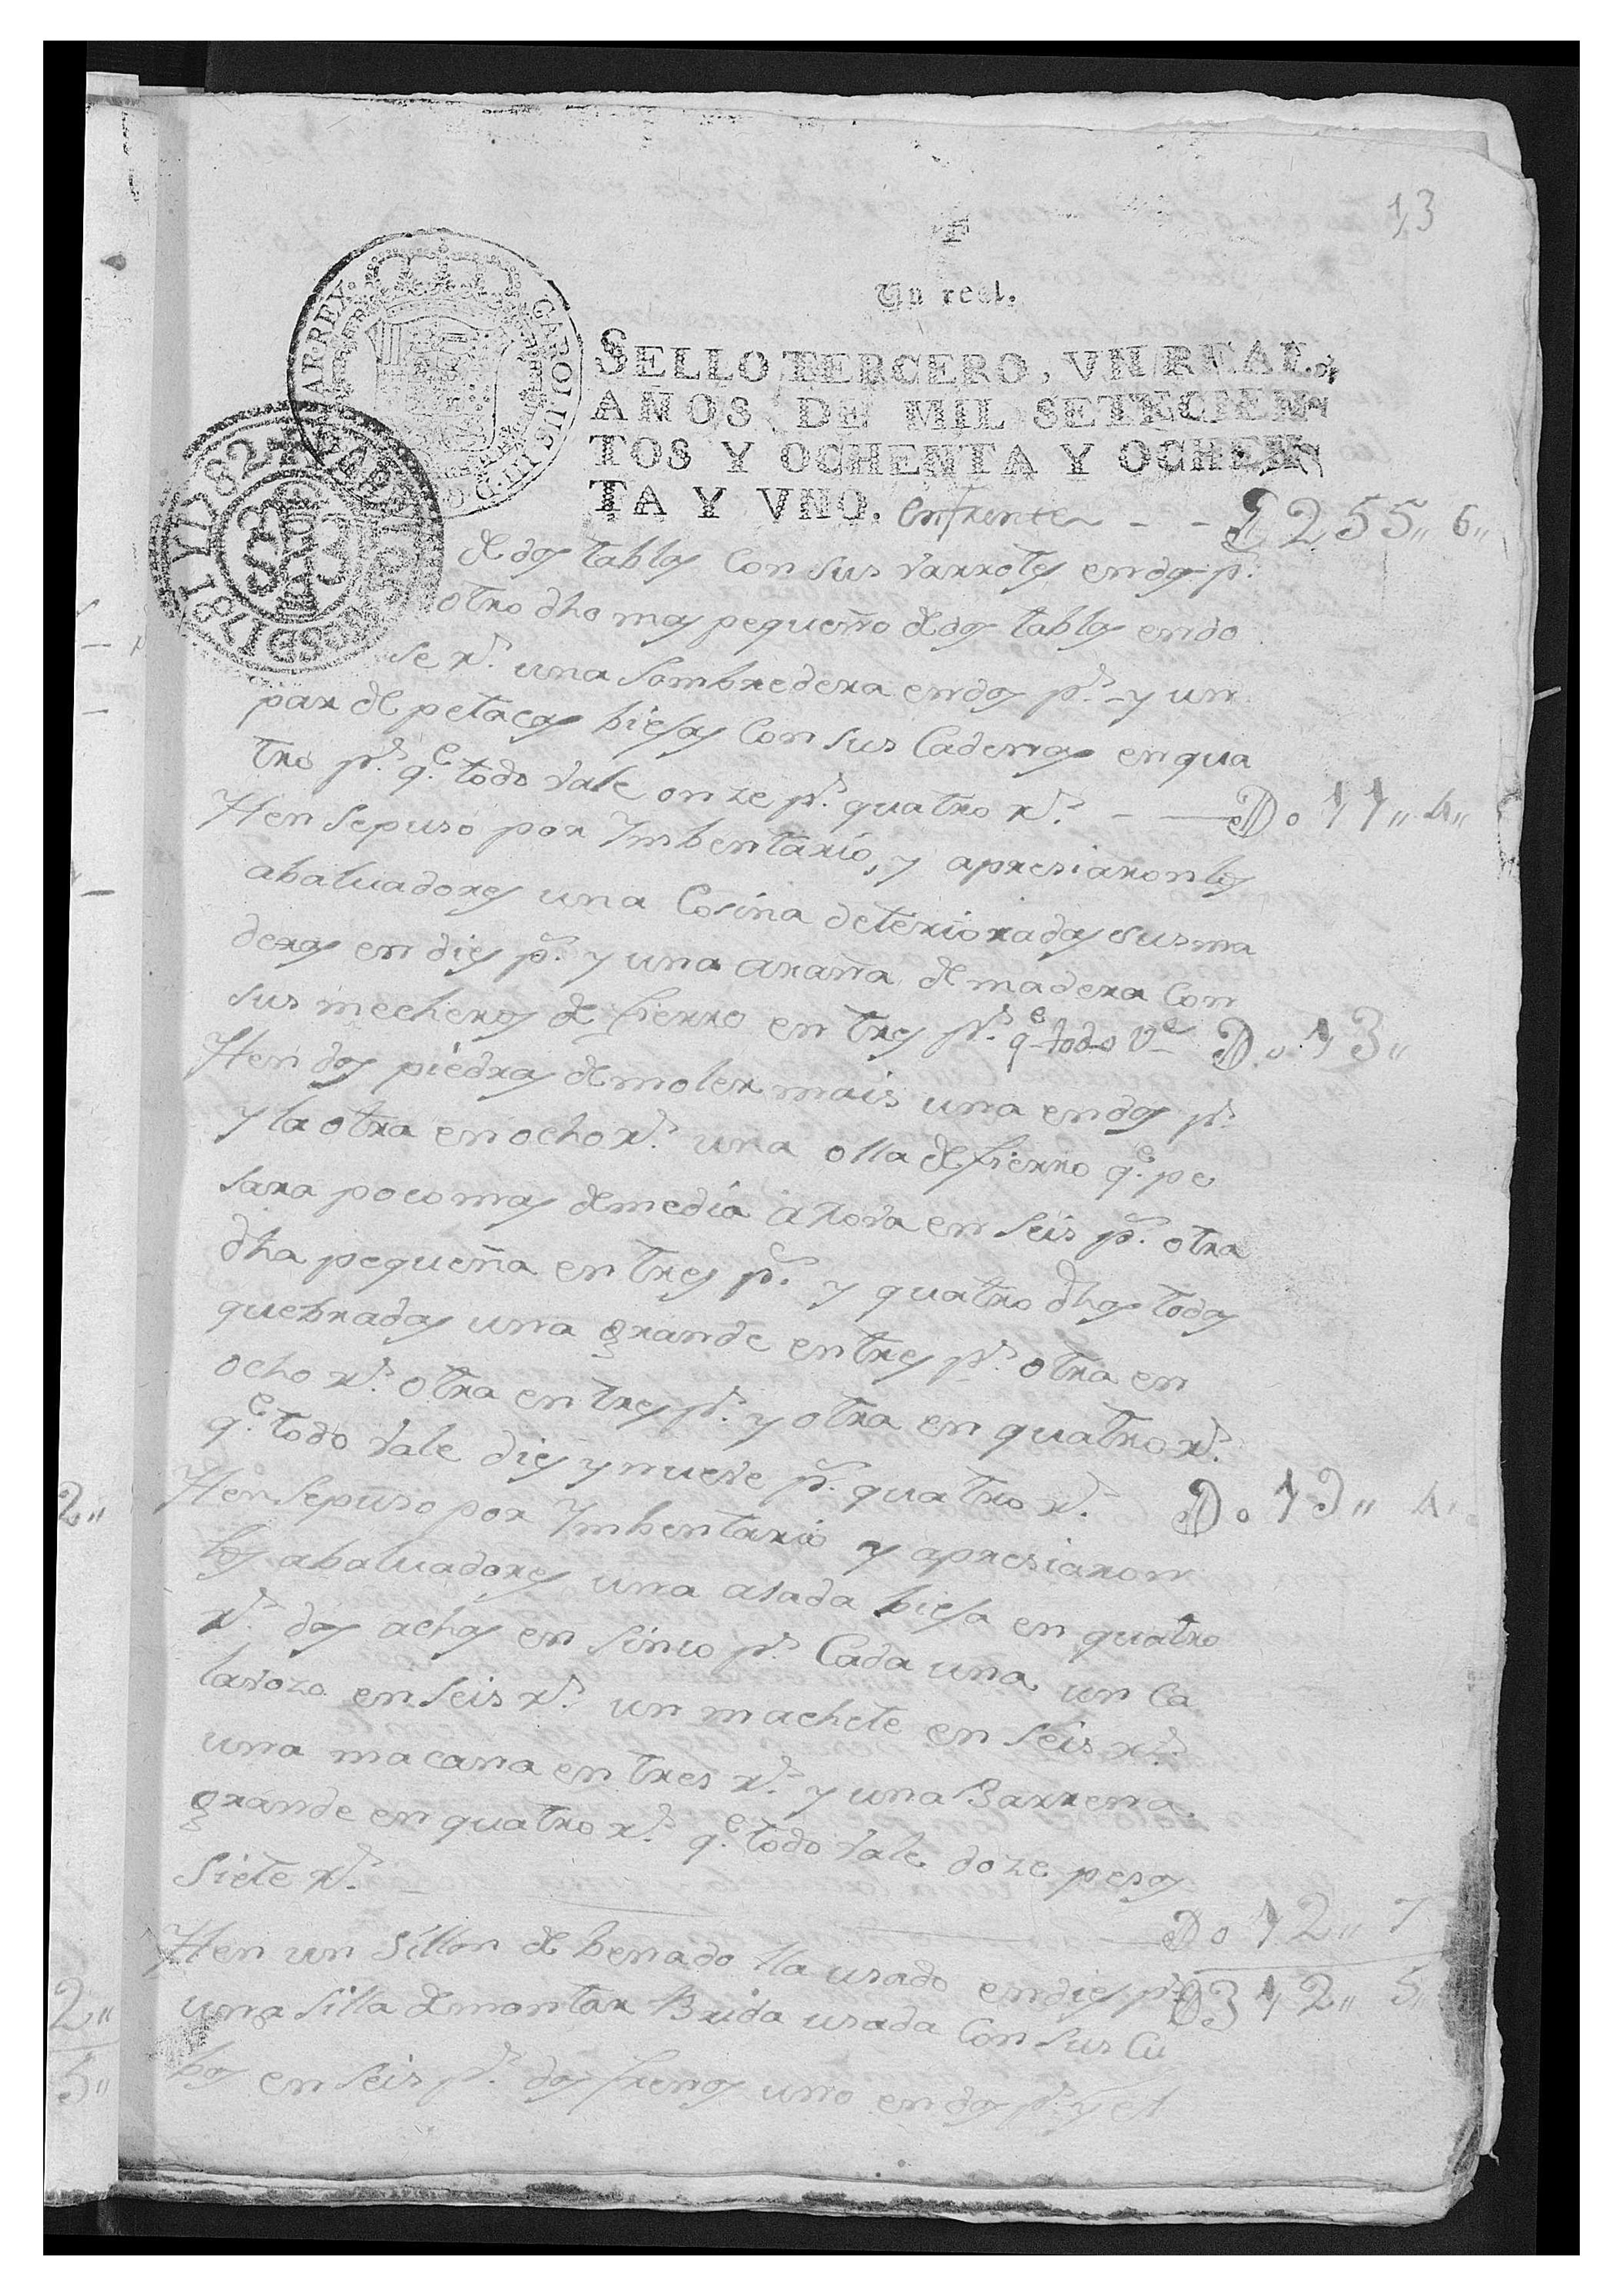 13
Un real.
SELLO TERCERO, VN REAL,
AÑOS DE MIL SETECIEN-
TOS Y OCHENTA Y OCHEN-
TA Y VNO.
CAROLUS III D G REX
1782 Y 83
Enfrente - - 2255,, 6,,
de dos tablas Con sus varrotes en dos p.s
otro dho mas pequeño de dos tablas en do
se r.s una sombredera en dos p.s y un
par de petacas biejas Con sus Cadenas en qua
tro p.s q.e todo vale onze p.s quatro r.s - — Do 11,, 4,,
Yten se puso por Ymbentario, y apresiaron los
abaluadores una Cosina deterioradas sus ma
deras en dies p.s y una araña de madera Con
sus mecheros de fierro en tres p.s q.e todo v.e Do 13,,
Yten dos piedras de moler mais una en dos p.s
y la otra en ocho r.s una olla de fierro q.e pe
sara poco mas de media arrova en seis p.s otra
dha pequeña en tres p.s y quatro dhas todas
quebradas una grande en tres p.s otra en
ocho r.s otra en tres p.s y otra en quatro r.s
q.e todo vale dies y nueve p.s quatro r.s Do 19,, 4,,
Yten se puso por Ymbentario y apresiaron
los abaluadores una asada biesa en quatro
r.s dos achas en sinco p.s Cada una, un Ca
lavozo en seis r.s un machete en seis r.s
una macana en tres r.s y una Barrena
grande en quatro r.s q.e todo vale doze pesos
siete r.s — Do 12,, 7
Yten un sillon de benado lla usado en dies p.s D2312,, 5,,
una silla de montar Brida usada Con sus Cu
bos en seis p.s dos frenos uno en dos p.s y el
2,,
2,,
5,,